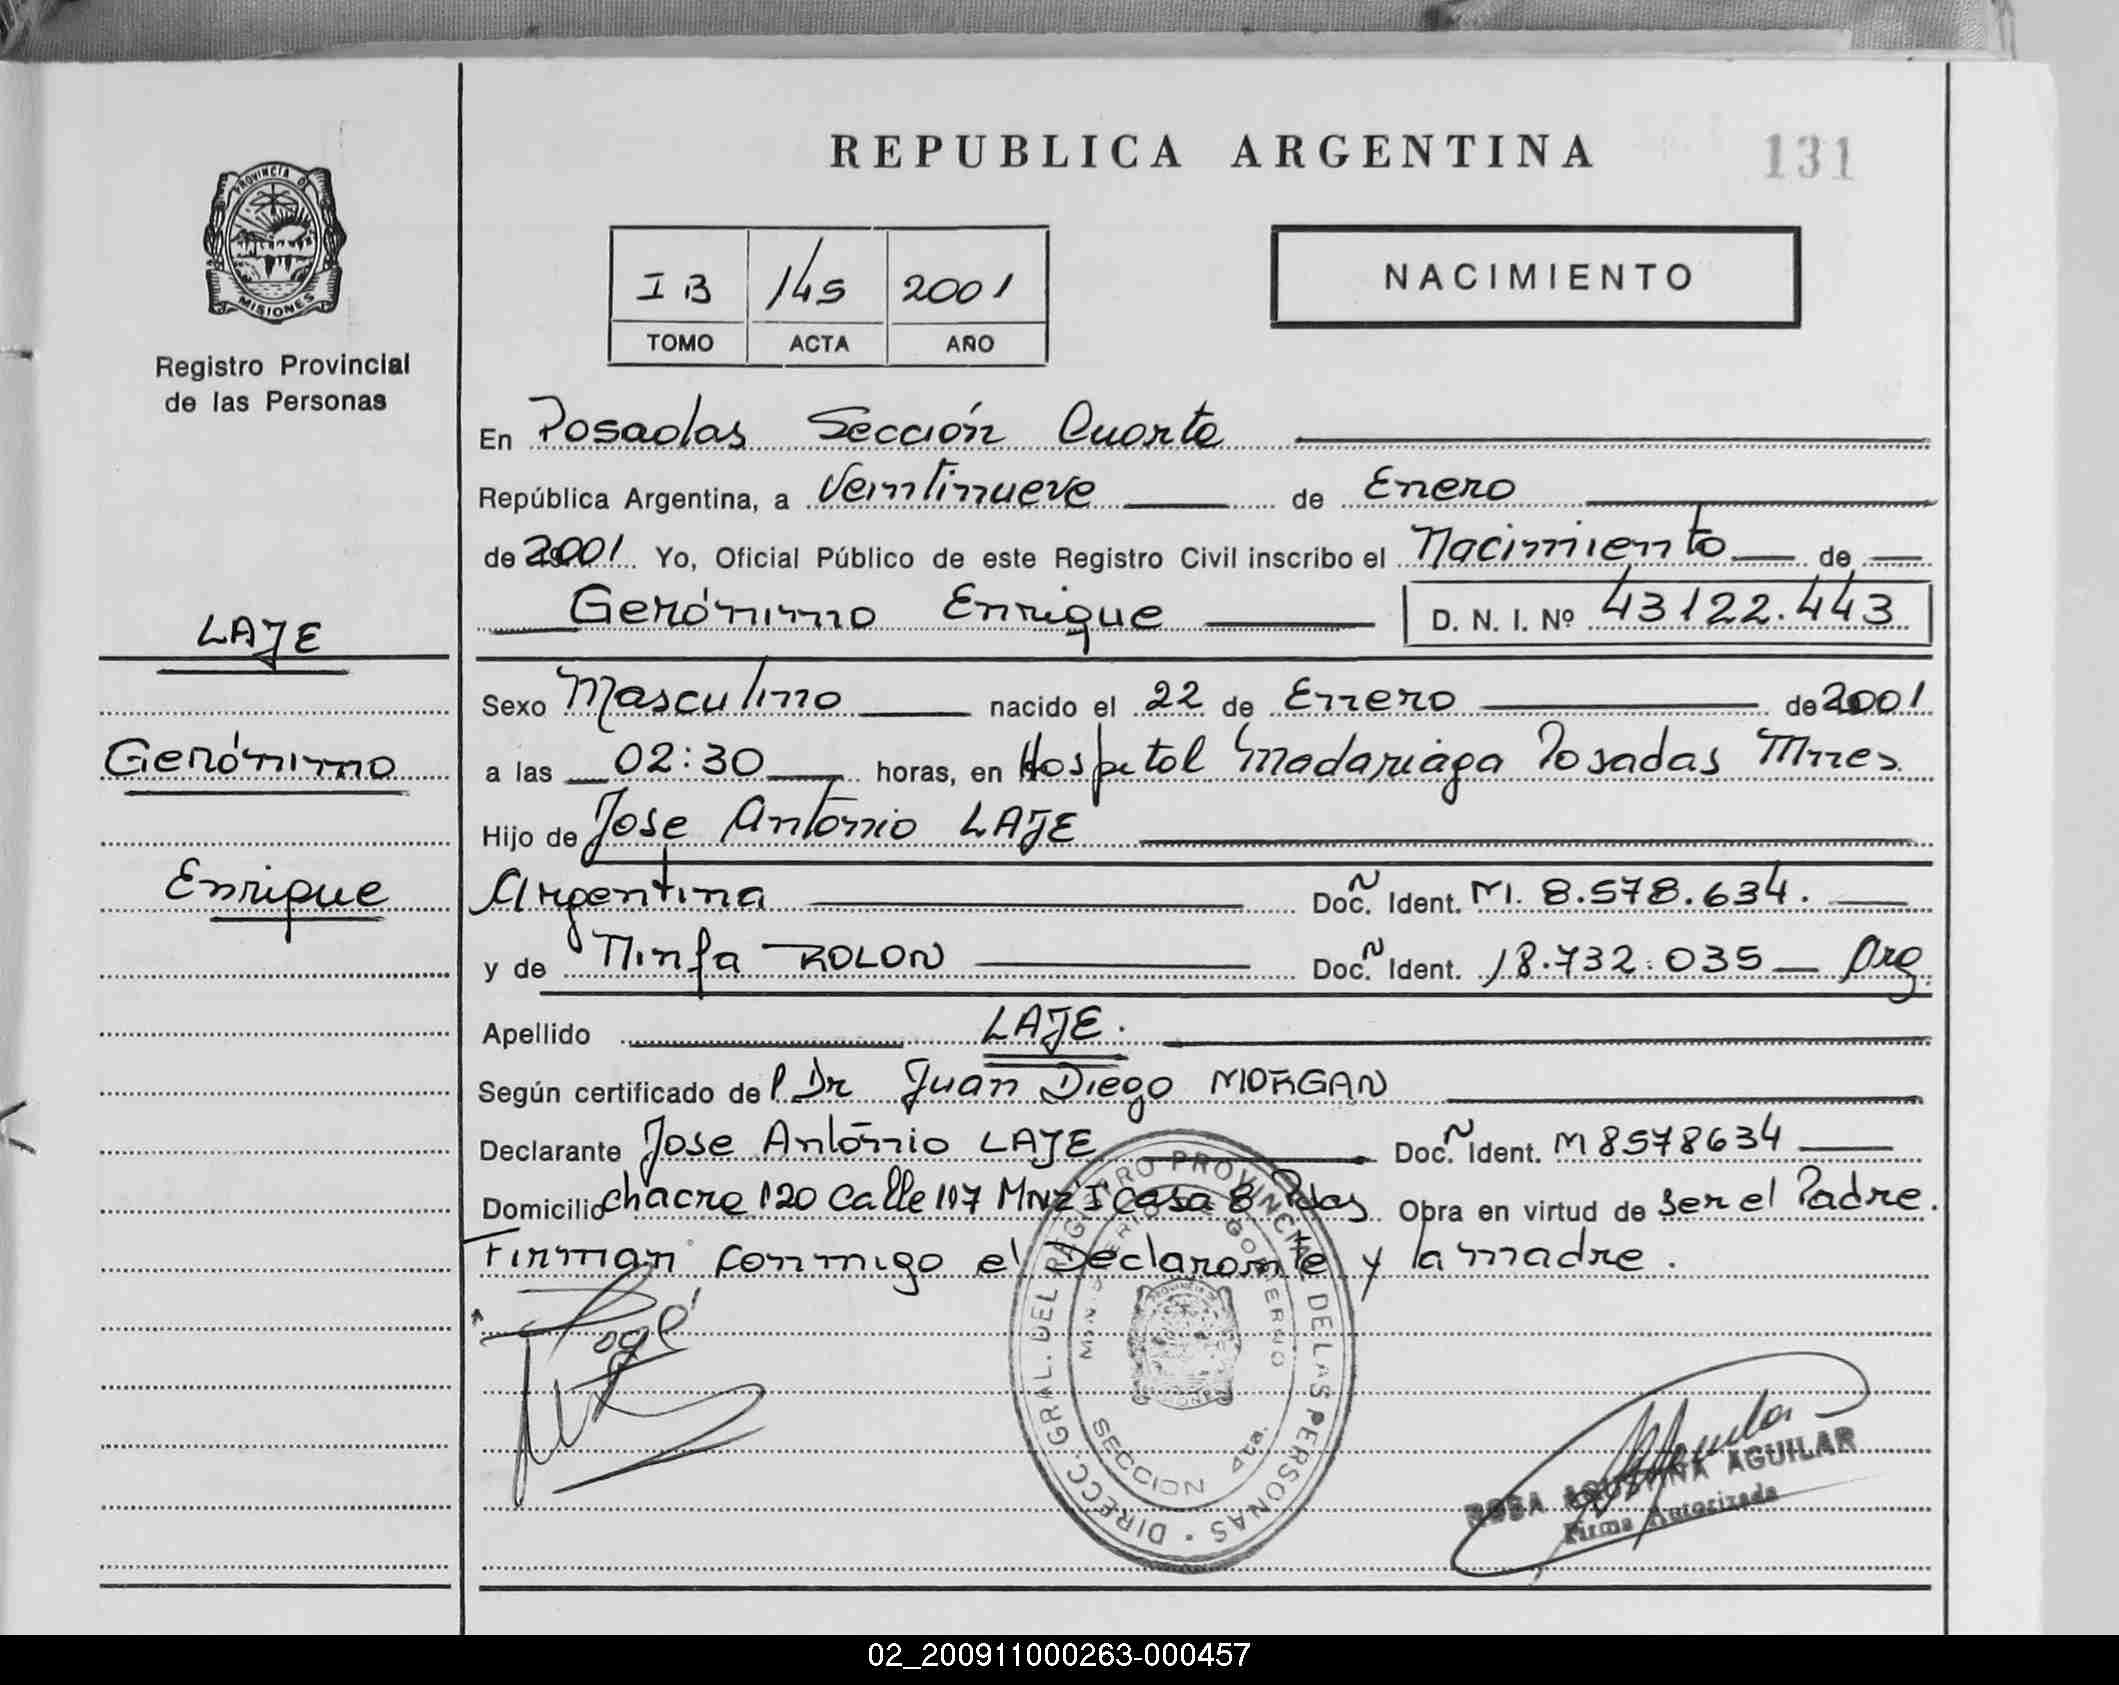 REPUBLICA ARGENTINA
131
PROVINCIA DE
MISIONES
Registro Provincial
de las Personas
IB 145 2001
TOMO ACTA AÑO
NACIMIENTO
En Posadas Sección Cuarta
República Argentina, a Veintinueve de Enero
de 2001 Yo, Oficial Público de este Registro Civil inscribo el Nacimiento de
Gerónimo Enrique D. N. I. Nº 43122.443
LAJE
Sexo Masculino nacido el 22 de Enero de 2001
Gerónimo
a las 02:30 horas, en Hospital Madariaga Posadas Mnes
Hijo de Jose Antonio LAJE
Enrique
Argentina Doc. Ident. M. 8.578.634.
y de Ninfa ROLON Doc. Ident. 18.732.035 Arg.
Apellido LAJE.
Según certificado del Dr Juan Diego MORGAN
Declarante Jose Antonio LAJE Doc. Ident. M 8578634
Domicilio chacra 120 Calle 117 Mnz I Casa 8 Pdas Obra en virtud de ser el Padre.
Firman conmigo el Declarante y la madre.
DIRECC. GRAL. DEL REGISTRO PROVINCIAL DE LAS PERSONAS
MINISTERIO DE GOBIERNO
SECCION 4ta.
ROSA AGUSTINA AGUILAR
Firma Autorizada
02_200911000263-000457